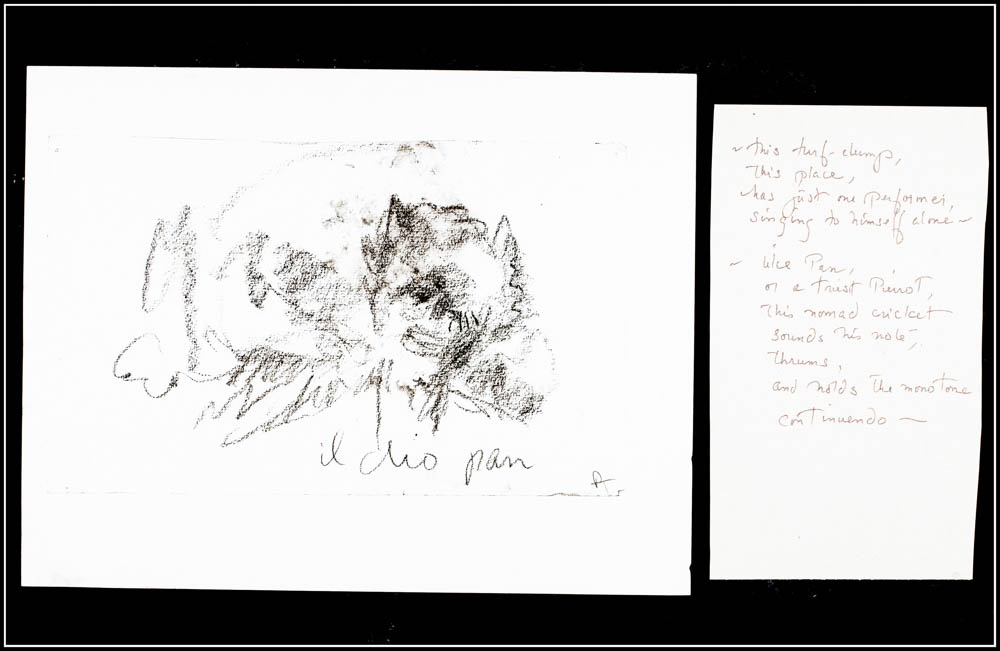 il dio pan
~ this turf-clump,
this place,
has just one performer,
singing to himself alone ~
~ like Pan,
or a triste Pierrot,
this nomad cricket
sounds his note,
thrums,
and holds the monotone
continuendo ~